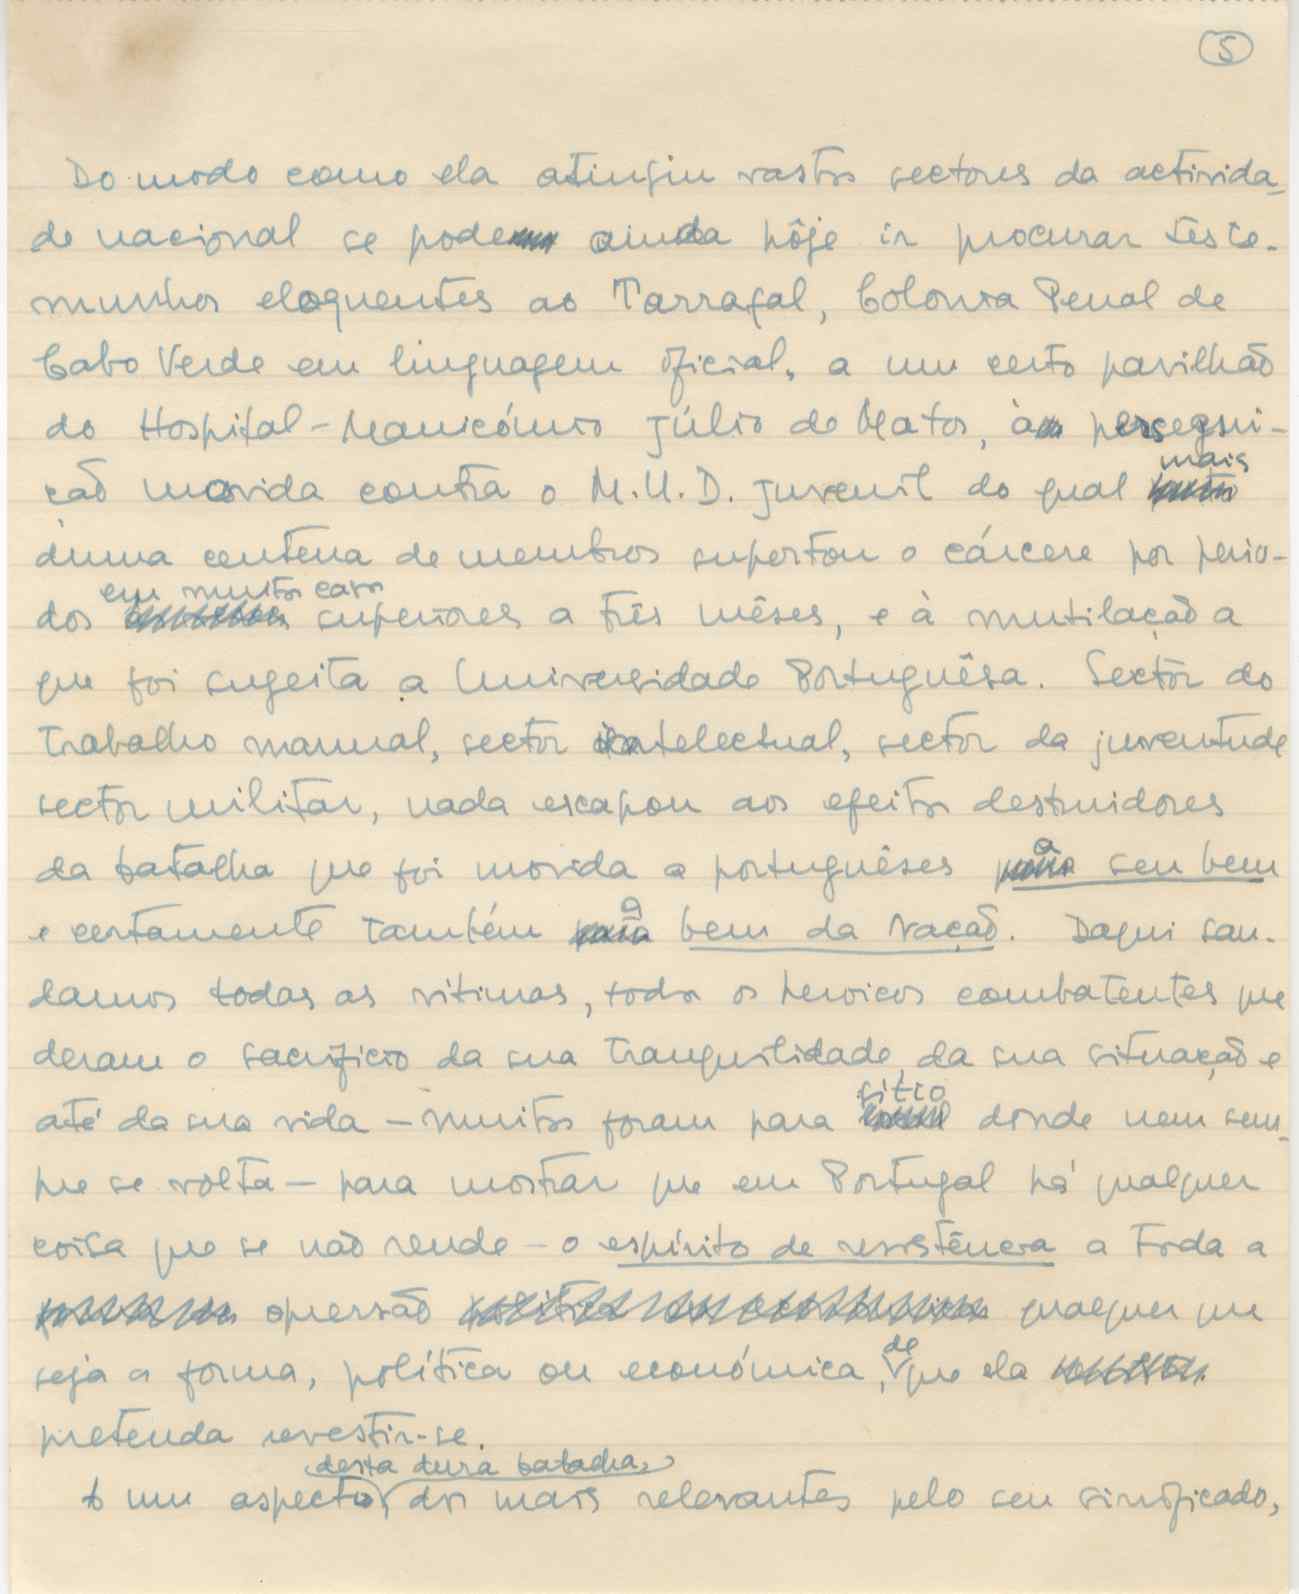 5
Do modo como ela atingiu vastos sectores da activida-
de nacional se pode ainda hôje ir procurar teste-
munhos eloquentes ao Tarrafal, Colonia Penal de
Cabo Verde em linguagem oficial, a um certo pavilhão
do Hospital-Manicómio Júlio de Matos, à persegui-
mais
ção movida contra o M.U.D. juvenil do qual
duma centena de membros suportou o cárcere por perio-
em muitos casos
dos superiores a três mêses, e à mutilação a
que foi sugeita a Universidade Portuguêsa. Sector do
trabalho manual, sector intelectual, sector da juventude
sector militar, nada escapou aos efeitos destruidores
a
da batalha que foi movida a portuguêses seu bem
a
e certamente também bem da Nação. Daqui sau-
damos todas as vitimas, todos os heroicos combatentes que
deram o sacrificio da sua tranquilidade, da sua situação e
sitio
até da sua vida — muitos foram para donde nem sem-
pre se volta — para mostrar que em Portugal há qualquer
coisa que se não rende — o espírito de resistência a toda a
opressão qualquer que
de
seja a forma, política ou económica, que ela
pretenda revestir-se.
desta dura batalha,
É um aspecto, dos mais relevantes pelo seu sinificado,